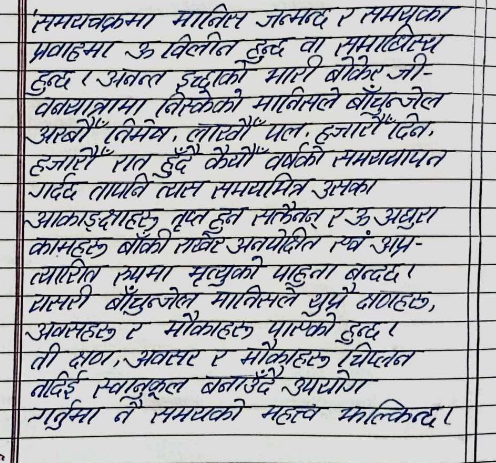 समयचक्रमा मानिस जन्मन्छ र समयका
प्रवाहमा ऊ विलीन हुन्छ वा समाधिस्थ
हुन्छ । अनन्त इच्छाको भारी बोकेर जी-
वनयात्रामा निस्केको मानिसले बाँचुन्जेल
अरबौँ निमेष, लाखौँ पल, हजारौँ दिन,
हजारौँ रात हुँदै कैयौँ वर्षको समययापन
गर्दछ तापनि त्यस समयभित्र उसका
आकाङ्क्षाहरू तृप्त हुन सक्तैनन् र ऊ अधुरा
कामहरू बाँकी राखेर अनपेक्षित एवं अप्र-
त्याशित रूपमा मृत्युको पाहुना बन्दछ।
यसरी बाँचुन्जेल मानिसले थुप्रै क्षणहरू,
अवसहरू र मौकाहरू पाएको हुन्छ।
ती क्षण, अवसर र मौकाहरू चिप्लन
नदिई स्वानुकूल बनाउँदै उपयोग
गर्नुमा नै समयको महत्त्व झल्किन्छ।